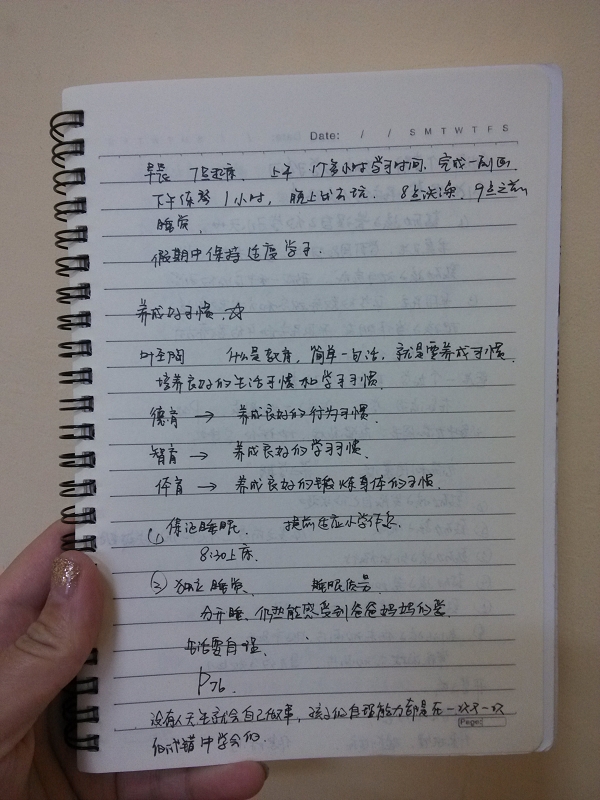 Date: / / S M T W T F S
早晨 7点起床. 上午 1个多小时学习时间. 完成一副画
下午练琴1小时, 晚上出去玩. 8点洗澡. 9点之前
睡觉.
假期中保持适度学习.
养成好习惯. ☆
叶圣陶 什么是教育, 简单一句话, 就是要养成习惯.
培养良好的生活习惯和学习习惯.
德育 → 养成良好的行为习惯.
智育 → 养成良好的学习习惯.
体育 → 养成良好的锻炼身体的习惯.
(1) 保证睡眠. 提前适应小学作息
8:30上床.
(2) 独立睡觉. 睡眠质量
分开睡、仍然能感受到爸爸妈妈的爱.
生活要自理.
P76.
没有人天生就会自己做事, 孩子的自理能力都是在一次又一次
Page:
的试错中学会的